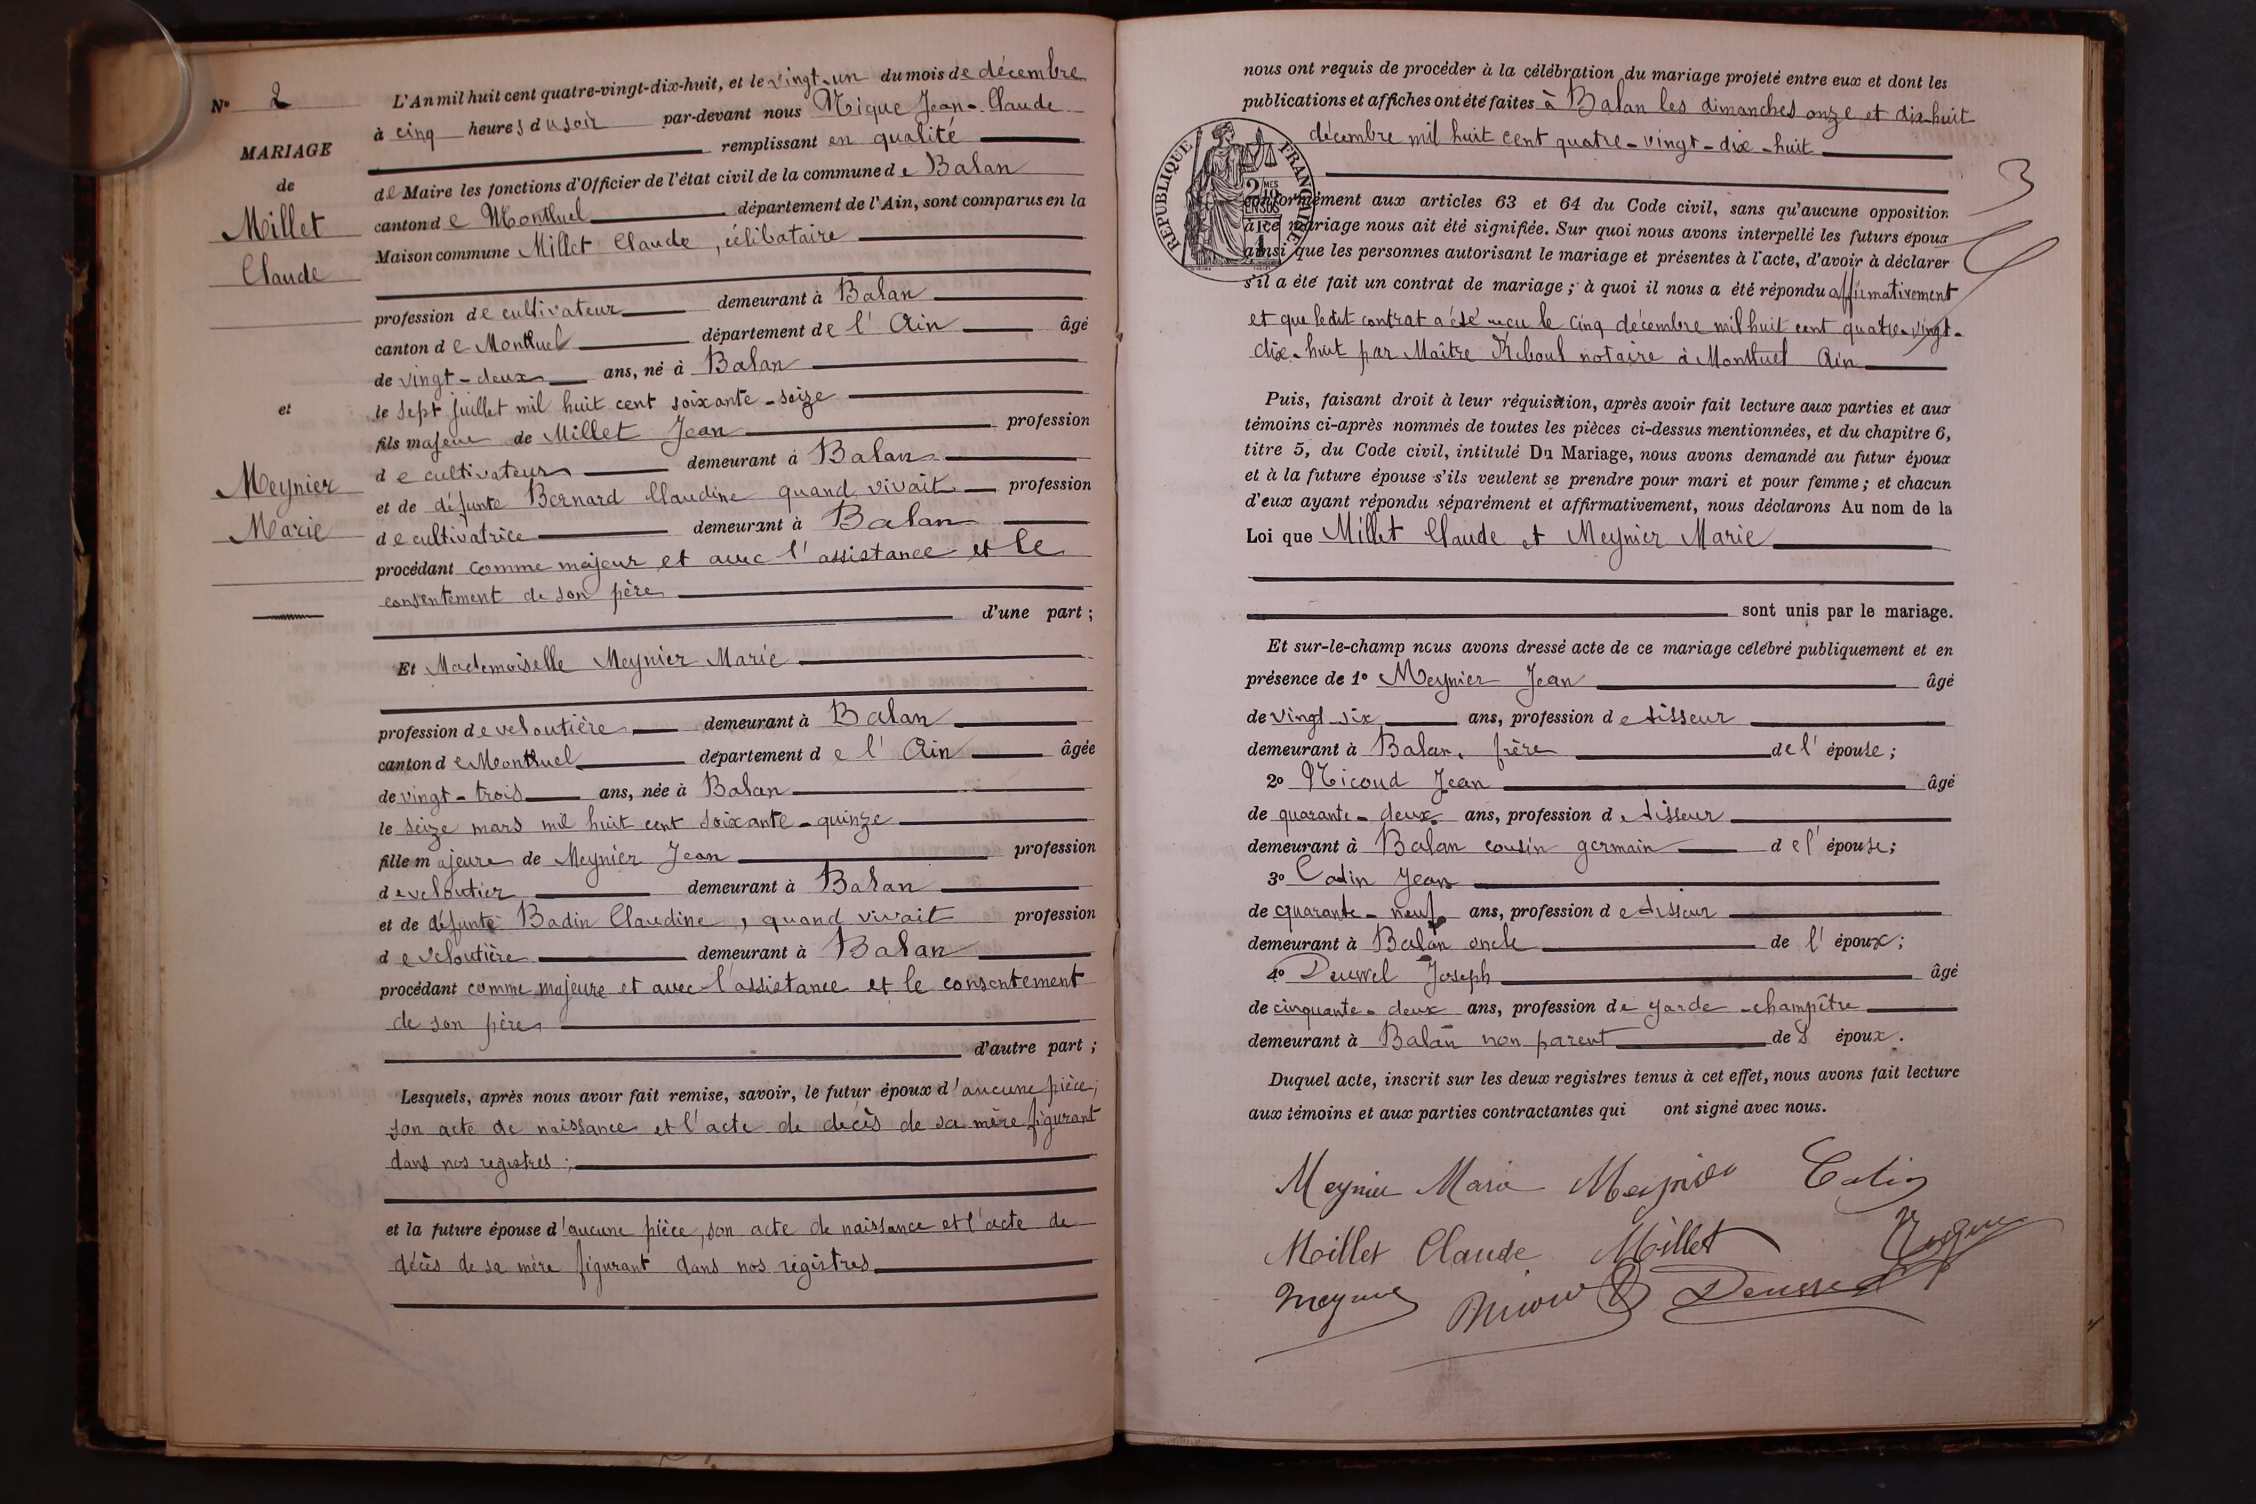 N° 2
MARIAGE
de
Millet
Claude
et
Meynier
Marie
L'An mil huit cent quatre-vingt-dix-huit, et le vingt-un du mois de décembre
à cinq heures du soir par-devant nous Nique Jean-Claude
remplissant en qualité
de Maire les fonctions d'Officier de l'état civil de la commune de Balan
canton de Montluel département de l'Ain, sont comparus en la
Maison commune Millet Claude, célibataire
profession de cultivateur demeurant à Balan
canton de Montluel département de l'Ain âgé
de vingt-deux ans, né à Balan
le sept juillet mil huit cent soixante-seize
fils majeur de Millet Jean profession
de cultivateur demeurant à Balan
et de défunte Bernard Claudine quand vivait profession
de cultivatrice demeurant à Balan
procédant comme majeur et avec l'assistance et le
consentement de son père
d'une part ;
Et Mademoiselle Meynier Marie
profession de veloutière demeurant à Balan
canton de Montluel département de l'Ain âgée
de vingt-trois ans, née à Balan
le seize mars mil huit cent soixante-quinze
fille majeure de Meynier Jean profession
de veloutier demeurant à Balan
et de défunte Badin Claudine, quand vivait profession
de veloutière demeurant à Balan
procédant comme majeure et avec l'assistance et le consentement
de son père
d'autre part ;
Lesquels, après nous avoir fait remise, savoir, le futur époux d'aucune pièce,
son acte de naissance et l'acte de décès de sa mère figurant
dans nos registres ;
et la future épouse d'aucune pièce, son acte de naissance et l'acte de
décès de sa mère figurant dans nos registres
nous ont requis de procéder à la célébration du mariage projeté entre eux et dont les
publications et affiches ont été faites à Balan les dimanches onze et dix-huit
décembre mil huit cent quatre-vingt-dix-huit
RÉPUBLIQUE FRANÇAISE
2 MES
10
EN SUS
3
conformément aux articles 63 et 64 du Code civil, sans qu'aucune opposition
à ce mariage nous ait été signifiée. Sur quoi nous avons interpellé les futurs époux
ainsi que les personnes autorisant le mariage et présentes à l'acte, d'avoir à déclarer
s'il a été fait un contrat de mariage ; à quoi il nous a été répondu affirmativement
et que ledit contrat a été reçu le cinq décembre mil huit cent quatre-vingt-
dix-huit par Maître Reboul notaire à Montluel Ain
Puis, faisant droit à leur réquisition, après avoir fait lecture aux parties et aux
témoins ci-après nommés de toutes les pièces ci-dessus mentionnées, et du chapitre 6,
titre 5, du Code civil, intitulé Du Mariage, nous avons demandé au futur époux
et à la future épouse s'ils veulent se prendre pour mari et pour femme ; et chacun
d'eux ayant répondu séparément et affirmativement, nous déclarons Au nom de la
Loi que Millet Claude et Meynier Marie
sont unis par le mariage.
Et sur-le-champ nous avons dressé acte de ce mariage célébré publiquement et en
présence de 1° Meynier Jean âgé
de vingt-six ans, profession de tisseur
demeurant à Balan, frère de l'épouse ;
2° Nicoud Jean âgé
de quarante-deux ans, profession de tisseur
demeurant à Balan cousin germain de l'épouse ;
3° Catin Jean
de quarante-neuf ans, profession de tisseur
demeurant à Balan oncle de l'époux ;
4° Joseph âgé
de cinquante-deux ans, profession de garde-champêtre
demeurant à Balan non parent de l'époux.
Duquel acte, inscrit sur les deux registres tenus à cet effet, nous avons fait lecture
aux témoins et aux parties contractantes qui ont signé avec nous.
Meynier Marie Meynier Catin
Millet Claude Millet
Meynier